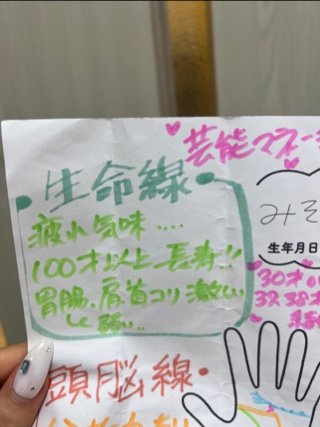 芸能マネー
・生命線・
疲れ気味....
100才以上長寿!!
胃腸、肩首コリ激しい
しく弱い..
みそ
生年月日
30才
37.38才
頭脳線・